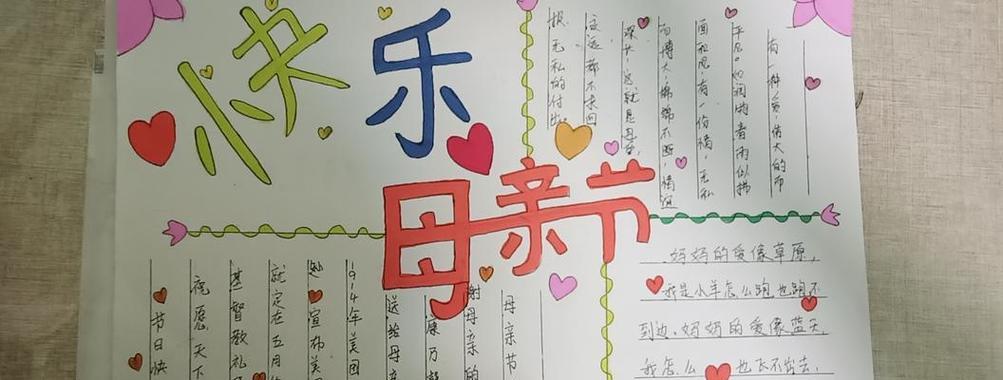 快乐
母亲节
有一种爱,伟大的而
平凡。如润物着雨似拂
面和风,有一份情,无私
而博大,绵绵不断,情谊
深长,这就是母爱,
永远都不求回
报,无私的付出。
母亲节
谢母亲的
康乃
送给母亲
1914年美国
宣布美
就定在五月
基督教礼
祝愿天下
节日快
妈妈的爱像草原,
我是小羊怎么跑也跑不
到边,妈妈的爱像蓝天
我怎么也飞不出去,